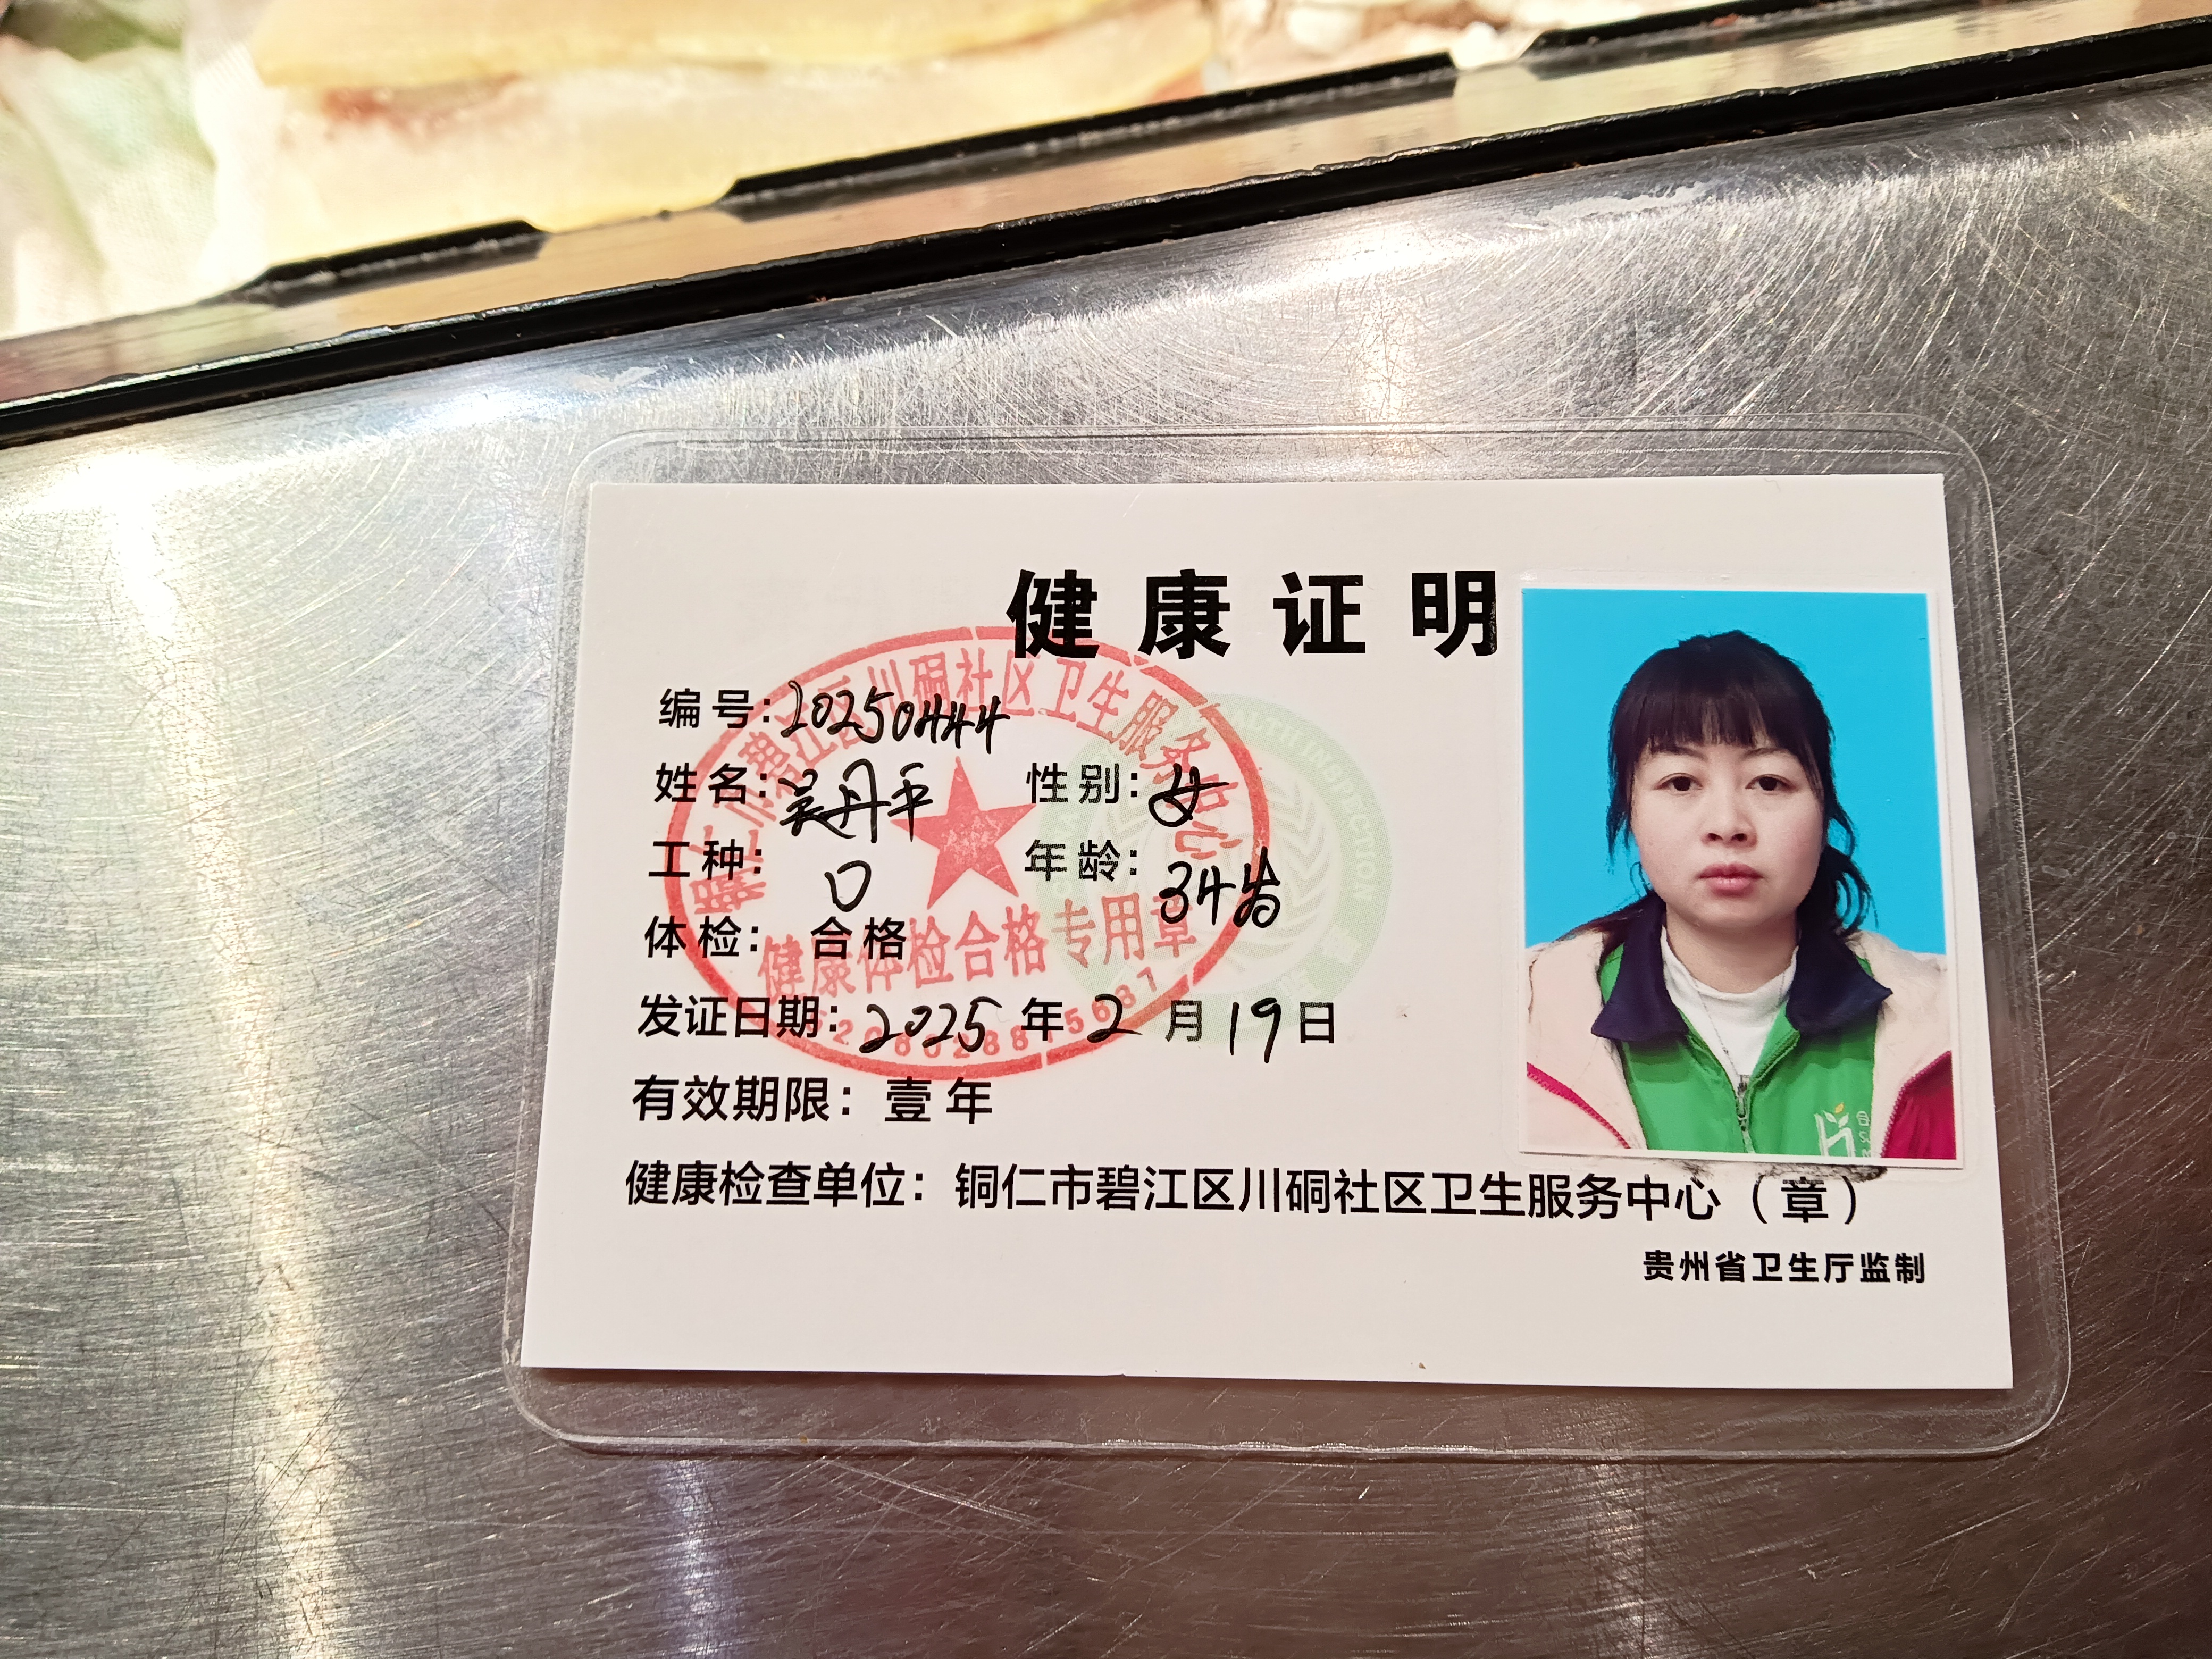 健康证明
编号：20250444
姓名：吴丹平 性别：女
工种： 年龄：34岁
体检：合格
发证日期：2025年2月19日
有效期限：壹年
健康检查单位：铜仁市碧江区川硐社区卫生服务中心（章）
贵州省卫生厅监制
铜仁市碧江区川硐社区卫生服务中心
健康体检合格专用章